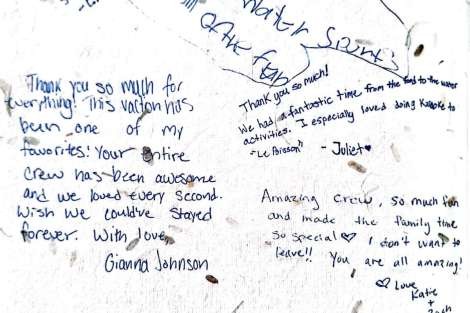 Water Sports
of the
Thank you so much for
everything! This vaction has
been one of my
favorites! Your entire
Crew has been awesome
and we loved every second.
Wish we could've stayed
forever. With love,
Gianna Johnson
Thank you so much!
We had a fantastic time from the food to the water
activities. I especially loved doing Karaoke to
"Le Poisson" - Juliet ♥
Amazing Crew, so much fun
and made the family time
so special ♡ I don't want to
leave!! You are all amazing!
♡ Love
Katie
+